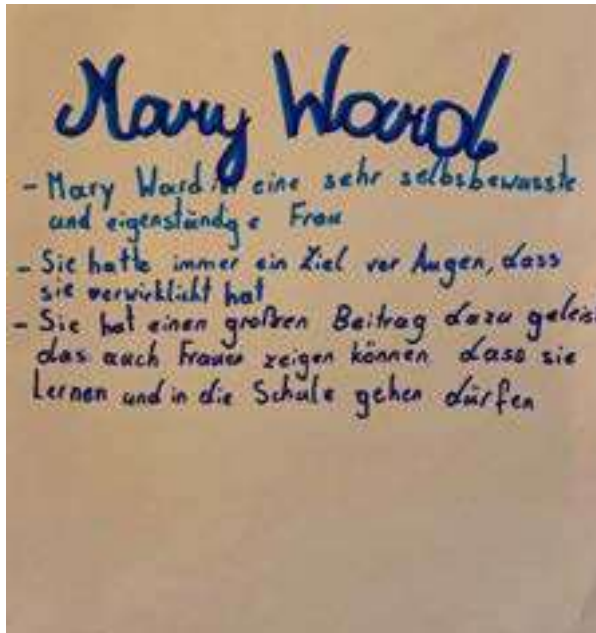 Mary Ward
- Mary Ward ist eine sehr selbsbewusste
und eigenständige Frau
- Sie hatte immer ein Ziel vor Augen, dass
sie verwirklicht hat
- Sie hat einen großen Beitrag dazu geleis
das auch Frauen zeigen können dass sie
Lernen und in die Schule gehen dürfen